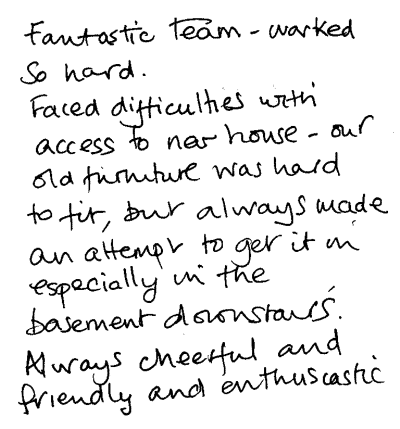 Fantastic Team - worked
So hard.
Faced difficulties with
access to new house - our
old furniture was hard
to fit, but always made
an attempt to get it in
especially in the
basement downstairs.
Always cheerful and
friendly and enthusiastic